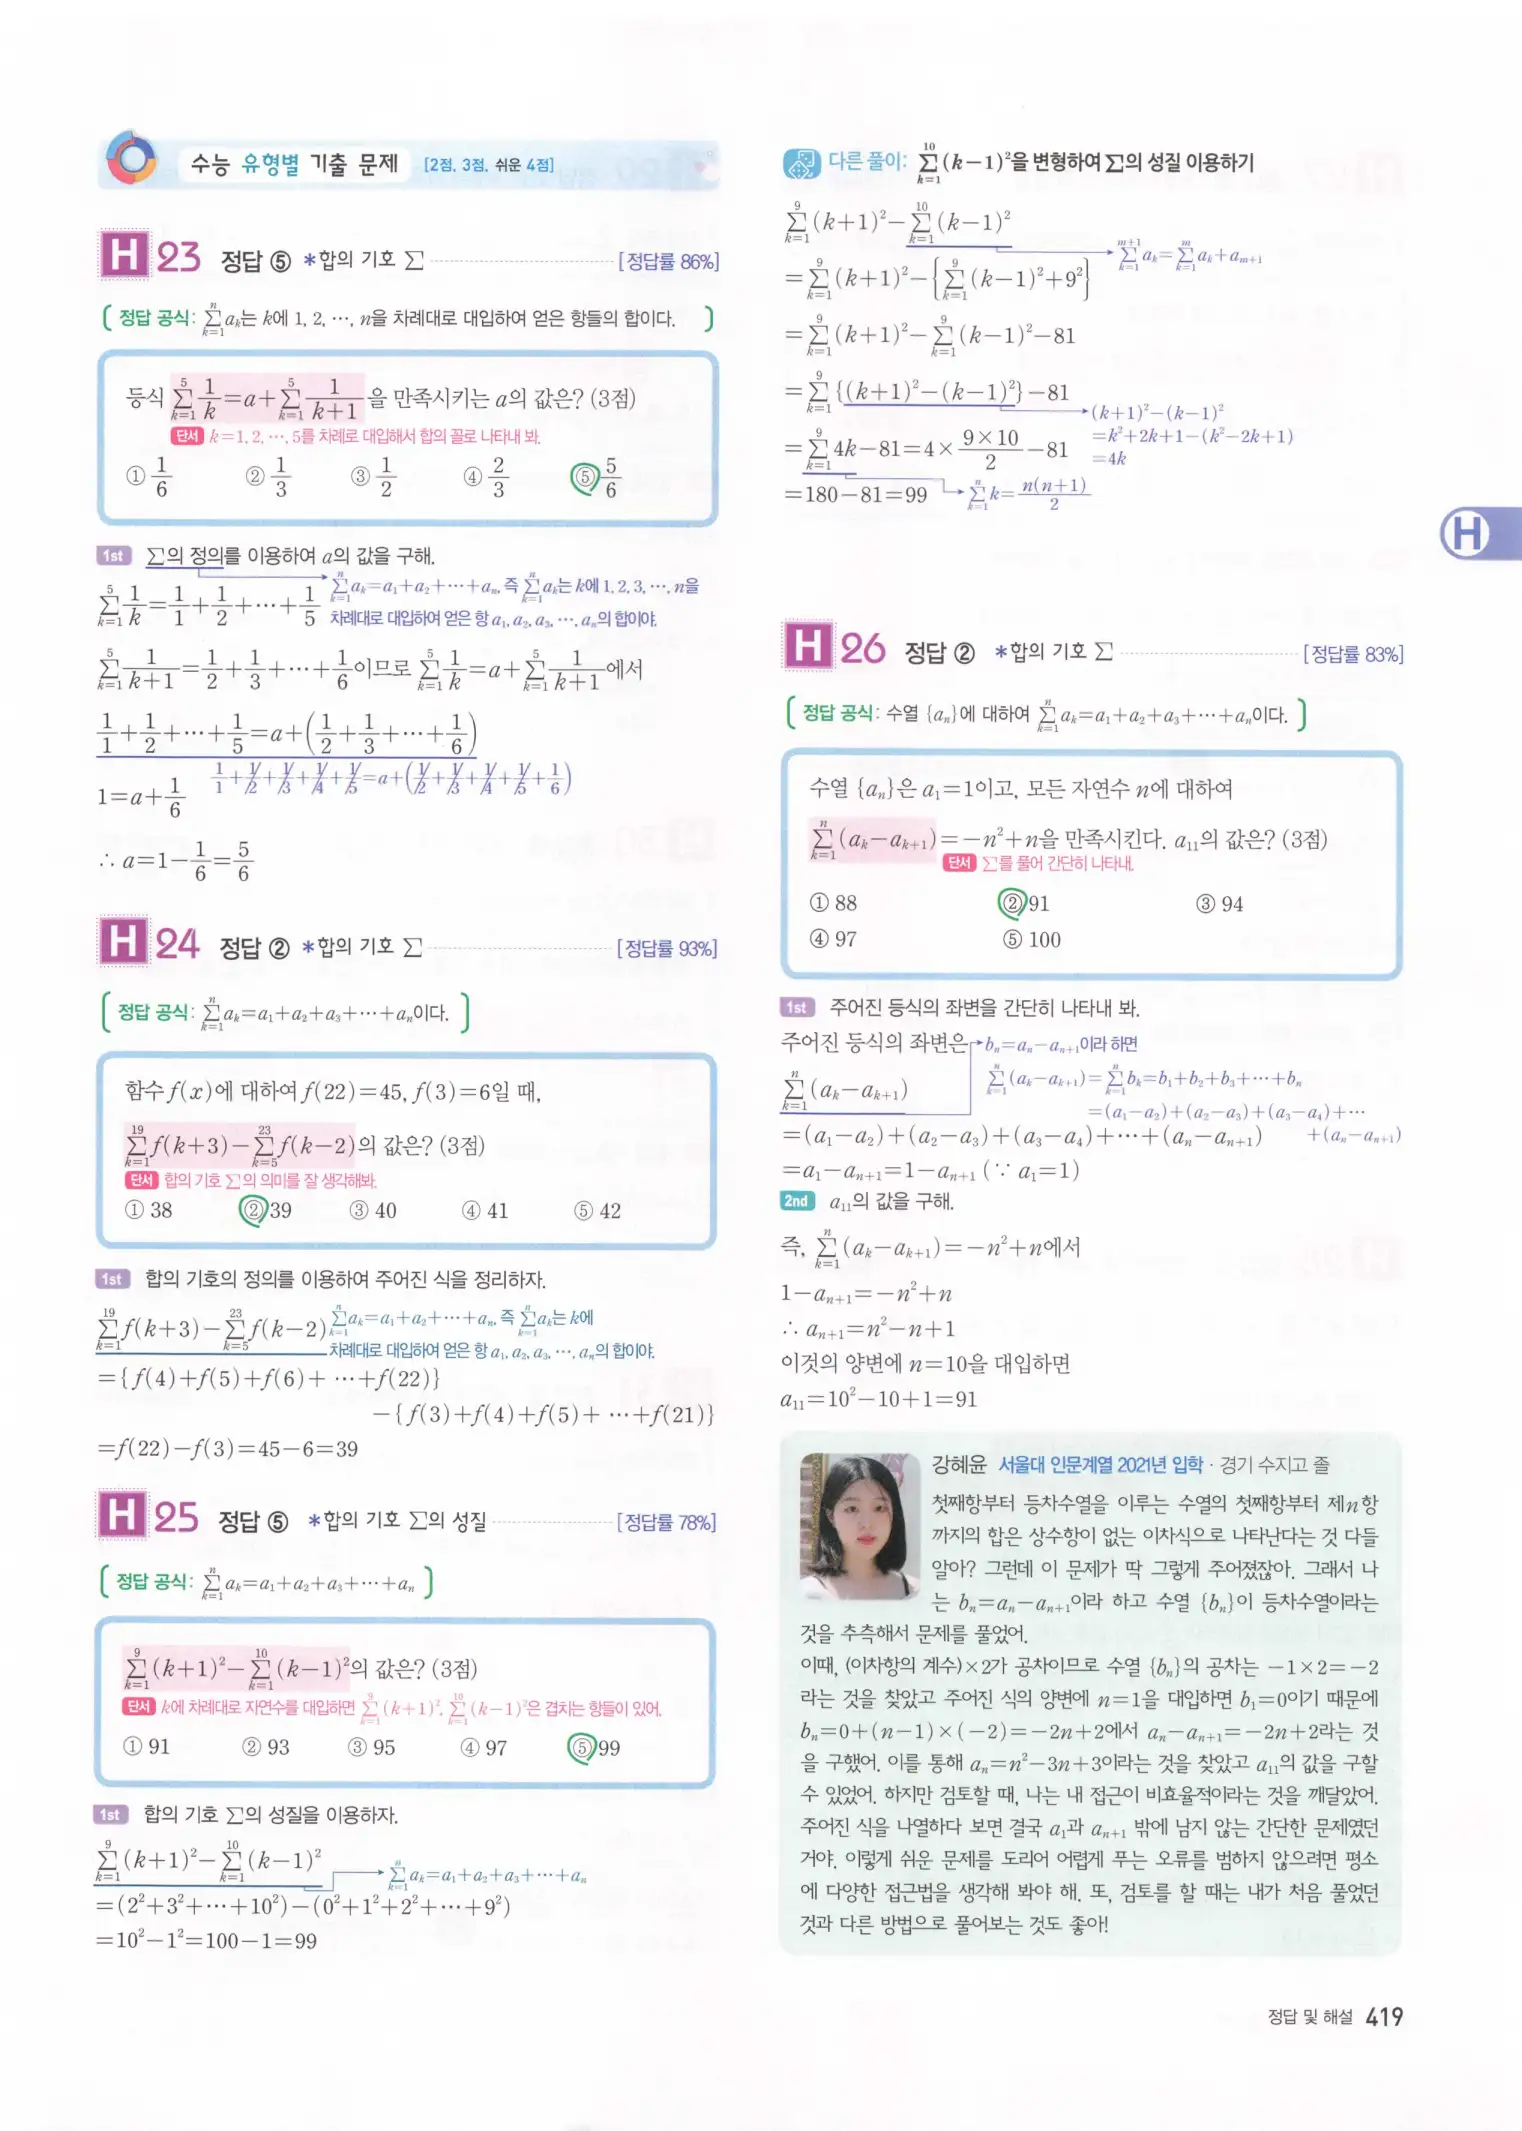 수능 유형별 기출 문제 [2점, 3점, 쉬운 4점]
H 23 정답 ⑤ *합의 기호 ∑ [정답률 86%]
( 정답 공식: ∑_{k=1}^{n} a_k는 k에 1, 2, ···, n을 차례대로 대입하여 얻은 항들의 합이다. )
등식 ∑_{k=1}^{5} 1/k = a + ∑_{k=1}^{5} 1/(k+1) 을 만족시키는 a의 값은? (3점)
단서 k=1, 2, ···, 5를 차례로 대입해서 합의 꼴로 나타내 봐.
① 1/6 ② 1/3 ③ 1/2 ④ 2/3 ⑤ 5/6
1st ∑의 정의를 이용하여 a의 값을 구해.
∑_{k=1}^{n} a_k=a_1+a_2+···+a_n, 즉 ∑_{k=1}^{n} a_k는 k에 1, 2, 3, ···, n을
차례대로 대입하여 얻은 항 a_1, a_2, a_3, ···, a_n의 합이야.
∑_{k=1}^{5} 1/k = 1/1 + 1/2 + ··· + 1/5
∑_{k=1}^{5} 1/(k+1) = 1/2 + 1/3 + ··· + 1/6이므로 ∑_{k=1}^{5} 1/k = a + ∑_{k=1}^{5} 1/(k+1)에서
1/1 + 1/2 + ··· + 1/5 = a + (1/2 + 1/3 + ··· + 1/6)
1/1 + 1/2 + 1/3 + 1/4 + 1/5 = a + (1/2 + 1/3 + 1/4 + 1/5 + 1/6)
1 = a + 1/6
∴ a = 1 − 1/6 = 5/6
H 24 정답 ② *합의 기호 ∑ [정답률 93%]
( 정답 공식: ∑_{k=1}^{n} a_k=a_1+a_2+a_3+···+a_n이다. )
함수 f(x)에 대하여 f(22)=45, f(3)=6일 때,
∑_{k=1}^{19} f(k+3) − ∑_{k=5}^{23} f(k−2)의 값은? (3점)
단서 합의 기호 ∑의 의미를 잘 생각해봐.
① 38 ② 39 ③ 40 ④ 41 ⑤ 42
1st 합의 기호의 정의를 이용하여 주어진 식을 정리하자.
∑_{k=1}^{19} f(k+3) − ∑_{k=5}^{23} f(k−2) ∑_{k=1}^{n} a_k=a_1+a_2+···+a_n, 즉 ∑_{k=1}^{n} a_k는 k에
차례대로 대입하여 얻은 항 a_1, a_2, a_3, ···, a_n의 합이야.
={f(4)+f(5)+f(6)+ ···+f(22)}
−{f(3)+f(4)+f(5)+ ···+f(21)}
=f(22)−f(3)=45−6=39
H 25 정답 ⑤ *합의 기호 ∑의 성질 [정답률 78%]
( 정답 공식: ∑_{k=1}^{n} a_k=a_1+a_2+a_3+···+a_n )
∑_{k=1}^{9} (k+1)²−∑_{k=1}^{10} (k−1)²의 값은? (3점)
단서 k에 차례대로 자연수를 대입하면 ∑_{k=1}^{9} (k+1)², ∑_{k=1}^{10} (k−1)²은 겹치는 항들이 있어.
① 91 ② 93 ③ 95 ④ 97 ⑤ 99
1st 합의 기호 ∑의 성질을 이용하자.
∑_{k=1}^{9} (k+1)²−∑_{k=1}^{10} (k−1)²
∑_{k=1}^{n} a_k=a_1+a_2+a_3+···+a_n
=(2²+3²+···+10²)−(0²+1²+2²+···+9²)
=10²−1²=100−1=99
다른 풀이: ∑_{k=1}^{10} (k−1)²을 변형하여 ∑의 성질 이용하기
∑_{k=1}^{9} (k+1)²−∑_{k=1}^{10} (k−1)²
∑_{k=1}^{m+1} a_k=∑_{k=1}^{m} a_k+a_{m+1}
=∑_{k=1}^{9} (k+1)²−{∑_{k=1}^{9} (k−1)²+9²}
=∑_{k=1}^{9} (k+1)²−∑_{k=1}^{9} (k−1)²−81
=∑_{k=1}^{9} {(k+1)²−(k−1)²}−81
(k+1)²−(k−1)²
=k²+2k+1−(k²−2k+1)
=4k
=∑_{k=1}^{9} 4k−81=4× (9×10)/2 −81
=180−81=99 ∑_{k=1}^{n} k= n(n+1)/2
H
H 26 정답 ② *합의 기호 ∑ [정답률 83%]
( 정답 공식: 수열 {a_n}에 대하여 ∑_{k=1}^{n} a_k=a_1+a_2+a_3+···+a_n이다. )
수열 {a_n}은 a_1=1이고, 모든 자연수 n에 대하여
∑_{k=1}^{n} (a_k−a_{k+1})=−n²+n을 만족시킨다. a_11의 값은? (3점)
단서 ∑를 풀어 간단히 나타내.
① 88 ② 91 ③ 94
④ 97 ⑤ 100
1st 주어진 등식의 좌변을 간단히 나타내 봐.
주어진 등식의 좌변은 b_n=a_n−a_{n+1}이라 하면
∑_{k=1}^{n} (a_k−a_{k+1}) ∑_{k=1}^{n} (a_k−a_{k+1})=∑_{k=1}^{n} b_k=b_1+b_2+b_3+···+b_n
=(a_1−a_2)+(a_2−a_3)+(a_3−a_4)+···
+(a_n−a_{n+1})
=(a_1−a_2)+(a_2−a_3)+(a_3−a_4)+···+(a_n−a_{n+1})
=a_1−a_{n+1}=1−a_{n+1} (∵ a_1=1)
2nd a_11의 값을 구해.
즉, ∑_{k=1}^{n} (a_k−a_{k+1})=−n²+n에서
1−a_{n+1}=−n²+n
∴ a_{n+1}=n²−n+1
이것의 양변에 n=10을 대입하면
a_11=10²−10+1=91
강혜윤 서울대 인문계열 2021년 입학 · 경기 수지고 졸
첫째항부터 등차수열을 이루는 수열의 첫째항부터 제n항
까지의 합은 상수항이 없는 이차식으로 나타난다는 것 다들
알아? 그런데 이 문제가 딱 그렇게 주어졌잖아. 그래서 나
는 b_n=a_n−a_{n+1}이라 하고 수열 {b_n}이 등차수열이라는
것을 추측해서 문제를 풀었어.
이때, (이차항의 계수)×2가 공차이므로 수열 {b_n}의 공차는 −1×2=−2
라는 것을 찾았고 주어진 식의 양변에 n=1을 대입하면 b_1=0이기 때문에
b_n=0+(n−1)×(−2)=−2n+2에서 a_n−a_{n+1}=−2n+2라는 것
을 구했어. 이를 통해 a_n=n²−3n+3이라는 것을 찾았고 a_11의 값을 구할
수 있었어. 하지만 검토할 때, 나는 내 접근이 비효율적이라는 것을 깨달았어.
주어진 식을 나열하다 보면 결국 a_1과 a_{n+1} 밖에 남지 않는 간단한 문제였던
거야. 이렇게 쉬운 문제를 도리어 어렵게 푸는 오류를 범하지 않으려면 평소
에 다양한 접근법을 생각해 봐야 해. 또, 검토를 할 때는 내가 처음 풀었던
것과 다른 방법으로 풀어보는 것도 좋아!
정답 및 해설 419